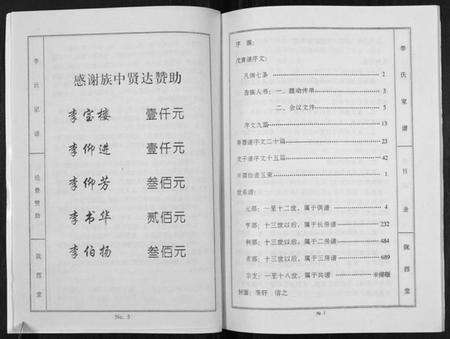 李氏家谱
经费赞助
陇西堂
感谢族中贤达赞助
李宝楼 壹仟元
李仰进 壹仟元
李仰芳 叁佰元
李书华 贰佰元
李伯扬 叁佰元
No. 5
序 版:
戊寅谱序文:
凡例七条 2
告族人书: 一、鼓动传单 3
二、会议文件 5
序文九篇 13
序文二十篇 23
序文十五篇 42
世系谱:
元部: 一至十二世, 属于供谱 4
亨部: 十三世以后, 属于长房谱 232
利部: 十三世以后, 属于二房谱 484
贞部: 十三世以后, 属于三房谱 689
一至十八世, 属于
李氏家谱
目录
陇西堂